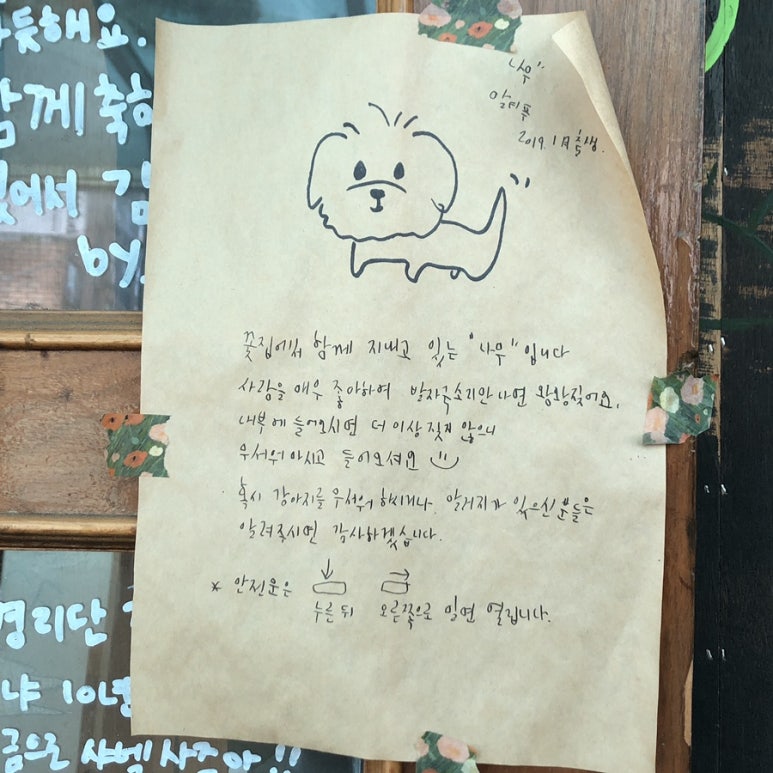 나무"
말티푸
2019. 1月 5 생.
꽃집에서 함께 지내고 있는 "나무" 입니다
사람을 매우 좋아하여 발자국소리만 나면 왕왕짖어요.
내부에 들어오시면 더 이상 짖지 않으니
무서워 마시고 들어오셔요
혹시 강아지를 무서워 하시거나, 알러지가 있으신 분들은
알려주시면 감사하겠습니다.
* 안전문은
누른 뒤 오른쪽으로 밀면 열립니다.
듯해요.
함께 축하
있어서 감
by.
경리단
냐 10년
금으로 샤넬 사